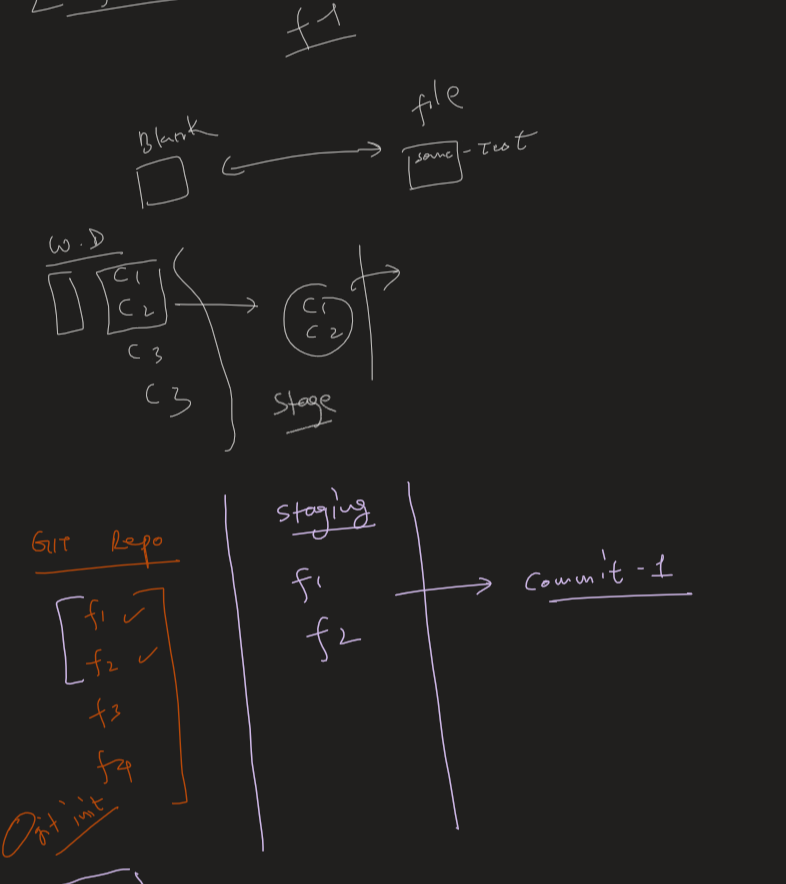 f1
Blank
file
some - Test
W.D
C1
C2
C3
C3
C1
C2
Stage
GIT Repo
f1 ✓
f2 ✓
f3
f4
git init
Staging
f1
f2
Commit - 1